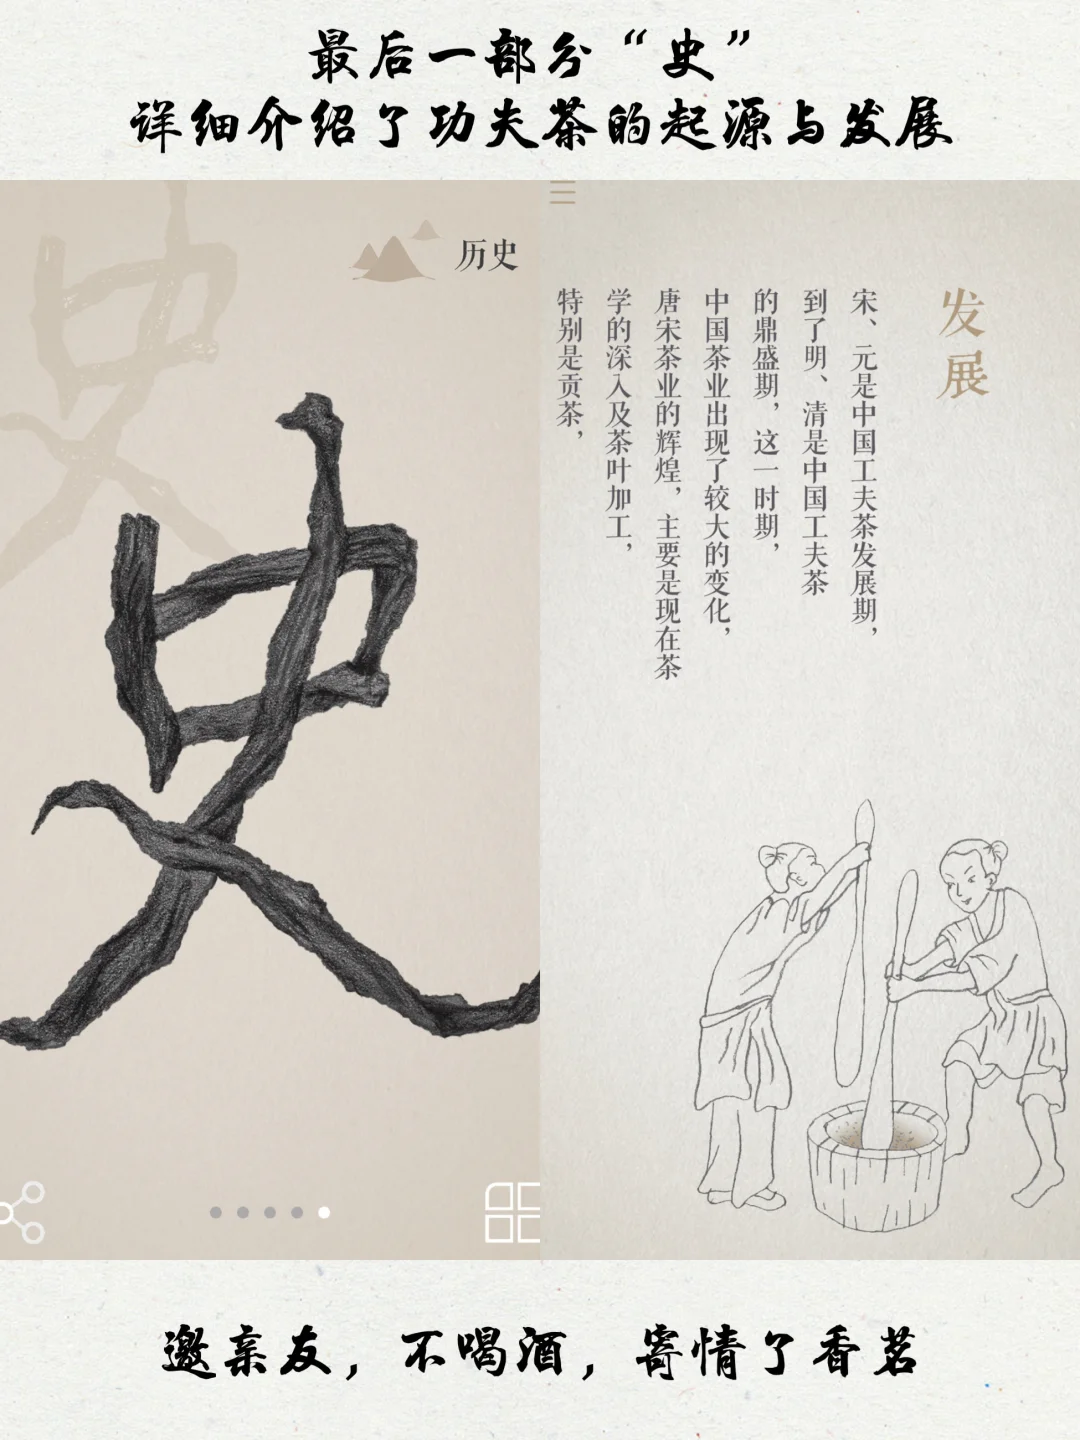 最后一部分“史”
详细介绍了功夫茶的起源与发展
史
历史
史
发展
宋、元是中国工夫茶发展期，
到了明、清是中国工夫茶
的鼎盛期，这一时期，
中国茶业出现了较大的变化，
唐宋茶业的辉煌，主要是现在茶
学的深入及茶叶加工，
特别是贡茶，
邀亲友，不喝酒，寄情了香茗